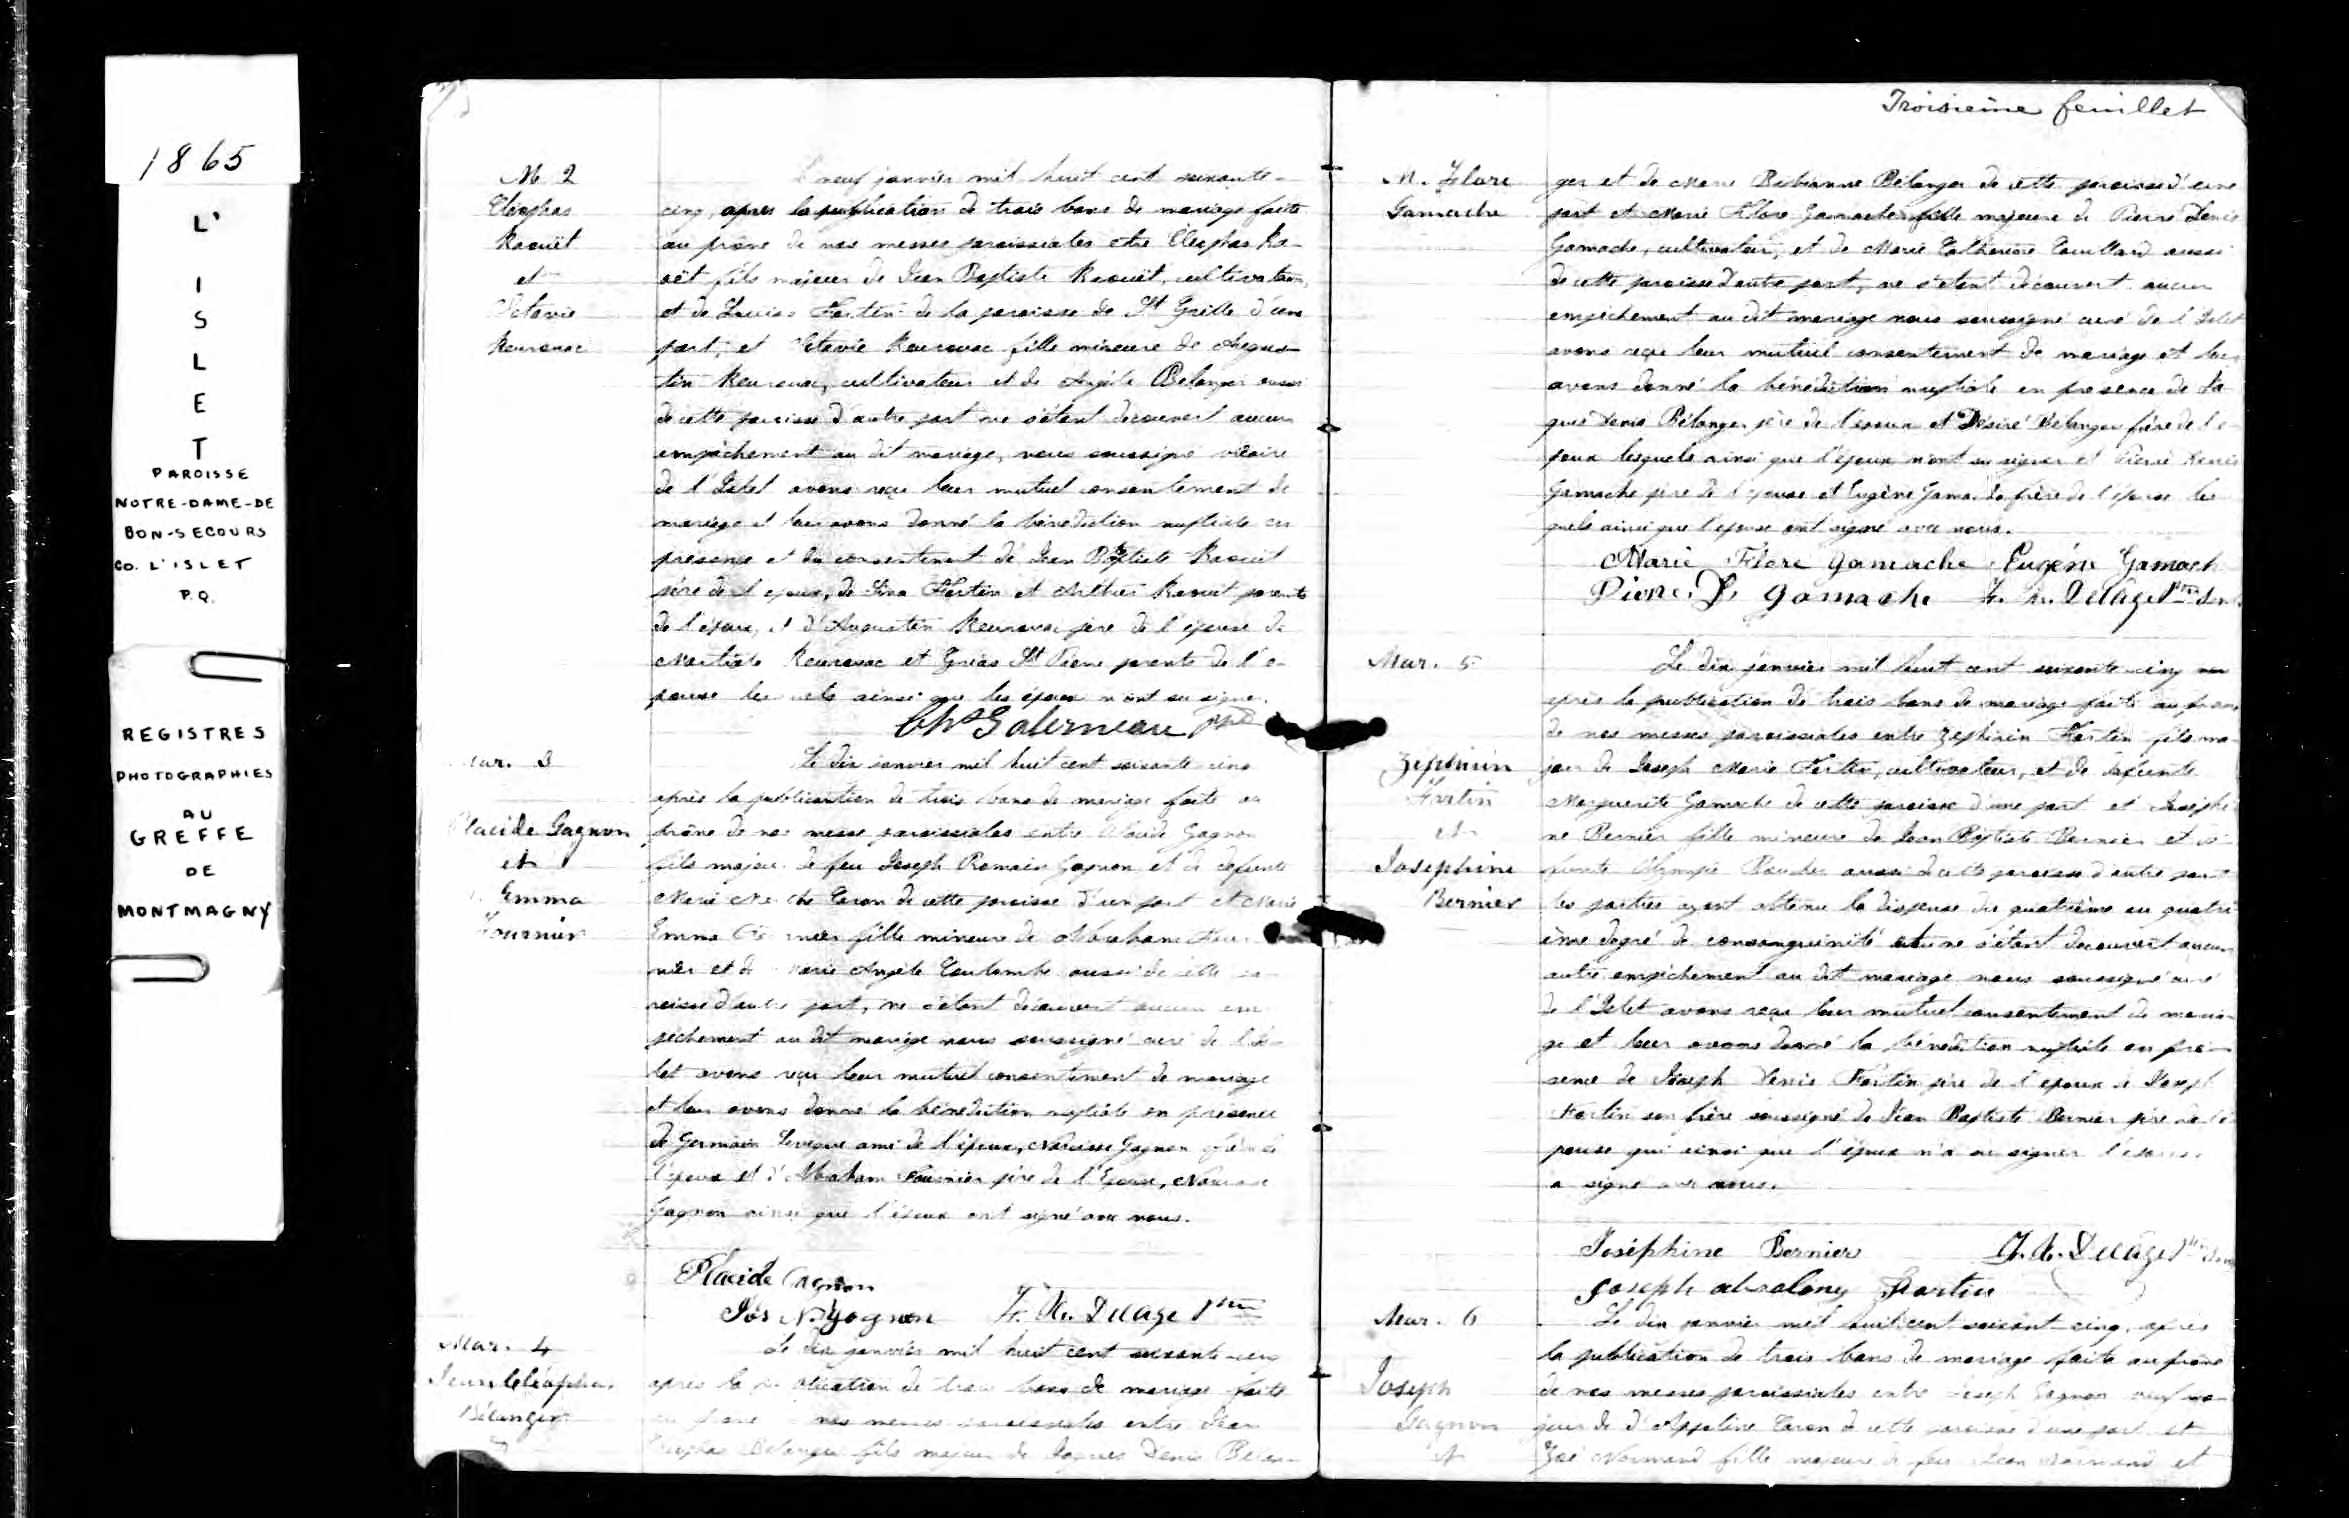 1865
L'
I
S
L
E
T
PAROISSE
NOTRE-DAME-DE
BON-SECOURS
CO. L'ISLET
P.Q.
REGISTRES
PHOTOGRAPHIES
AU
GREFFE
DE
MONTMAGNY
M. 2
Cléophas
Kaouët
et
Octavie
Keurouac
neuf janvier mil huit cent soixante-
cinq, après la publication de trois bans de mariage faite
au prône de nos messes paroissiales entre Cléophas Ka-
oët fils majeur de Jean Baptiste Kaouët, cultivateur,
et de Louise Fortin de la paroisse de St Cyrille d'une
part, et Octavie Keurouac fille mineure de Augus-
tin Keurouac, cultivateur et de Angèle Bélanger aussi
de cette paroisse d'autre part ne s'étant découvert aucun
empêchement au dit mariage, nous soussigné vicaire
de l'Islet avons reçu leur mutuel consentement de
mariage et leur avons donné la bénédiction nuptiale en
présence et du consentement de Jean Baptiste Kaouët
père de l'époux, de Fortin et Kaouet parents
de l'époux, et d'Augustin Keurouac père de l'épouse de
Keurouac et St Pierre parents de l'é-
pouse lesquels ainsi que les époux n'ont su signer.
Chs Galerneau ptre
Mar. 3
Placide Gagnon
et
Emma
Fournier
Le dix janvier mil huit cent soixante cinq
après la publication de trois bans de mariage faite au
prône de nos messe paroissiales entre Placide Gagnon
fils majeur de feu Joseph Romain Gagnon et de défunte
Marie Caron de cette paroisse d'une part et Marie
Emma fille mineure de Abraham Four-
nier et de Marie Angèle Coulombe aussi de cette pa-
roisse d'autre part, ne s'étant découvert aucun em-
pêchement au dit mariage nous soussigné curé de l'Is-
let avons reçu leur mutuel consentement de mariage
et leur avons donné la bénédiction nuptiale en présence
de Germain Leveque ami de l'époux, Narcisse Gagnon frère de
l'époux et d'Abraham Fournier père de l'Epouse, Narcisse
Gagnon ainsi que l'époux ont signé avec nous.
Placide Gagnon
Jos N. Gagnon F. X. Delage Ptre
Mar. 4
Jean Cléophas
Bélanger
Le dix janvier mil huit cent soixante-cinq
après la publication de trois bans de mariage faite
au prône de nos messes paroissiales entre Jean
Cléophas Bélanger fils majeur de Jaques Denis Bélan-
Troisième feuillet
M. Flore
Gamache
ger et de Marie Bélanger de cette paroisse d'une
part et Marie Flore Gamache fille majeure de Pierre Denis
Gamache, cultivateur, et de Marie Catherine Couillard aussi
de cette paroisse d'autre part, ne s'étant découvert aucun
empêchement au dit mariage nous soussigné curé de l'Islet
avons reçu leur mutuel consentement de mariage et leur
avons donné la bénédiction nuptiale en présence de Ja-
ques Denis Bélanger père de l'époux et Désiré Bélanger frère de l'é-
poux lesquels ainsi que l'époux n'ont su signer et Pierre Denis
Gamache père de l'épouse et Eugène Gamache frère de l'épouse les
quels ainsi que l'épouse ont signé avec nous.
Marie Flore Gamache Eugène Gamach
Pierre D. Gamache F. X. Delage Ptre
Mar. 5
Zéphirin
Fortin
et
Joséphine
Bernier
Le dix janvier mil huit cent soixante-cinq
après la publication de trois bans de mariage faite au prône
de nos messes paroissiales entre Zéphirin Fortin fils ma-
jeur de Joseph Marie Fortin, cultivateur, et de défunte
Marguerite Gamache de cette paroisse d'une part et Joséphi-
ne Bernier fille mineure de Jean Baptiste Bernier et dé-
funte Olympe aussi de cette paroisse d'autre part
les parties ayant obtenu la dispense du quatrième au quatri-
ème degré de consanguinité et ne s'étant découvert aucun
autre empêchement au dit mariage nous soussigné curé
de l'Islet avons reçu leur mutuel consentement de maria-
ge et leur avons donné la bénédiction nuptiale en pré-
sence de Joseph Denis Fortin père de l'époux de Joseph
Fortin son frère soussigné de Jean Baptiste Bernier père de l'é-
pouse qui ainsi que l'époux n'a su signer l'épouse
a signé avec nous.
Joséphine Bernier F. X. Delage Ptre
Joseph absalong Fortin
Mar. 6
Joseph
Gagnon
et
Le dix janvier mil huit cent soixante-cinq, après
la publication de trois bans de mariage faite au prône
de nos messes paroissiales entre Joseph Gagnon veuf ma-
jeur de d'Appoline Caron de cette paroisse d'une part et
Zoé Normand fille majeure de feu Jean Normand et